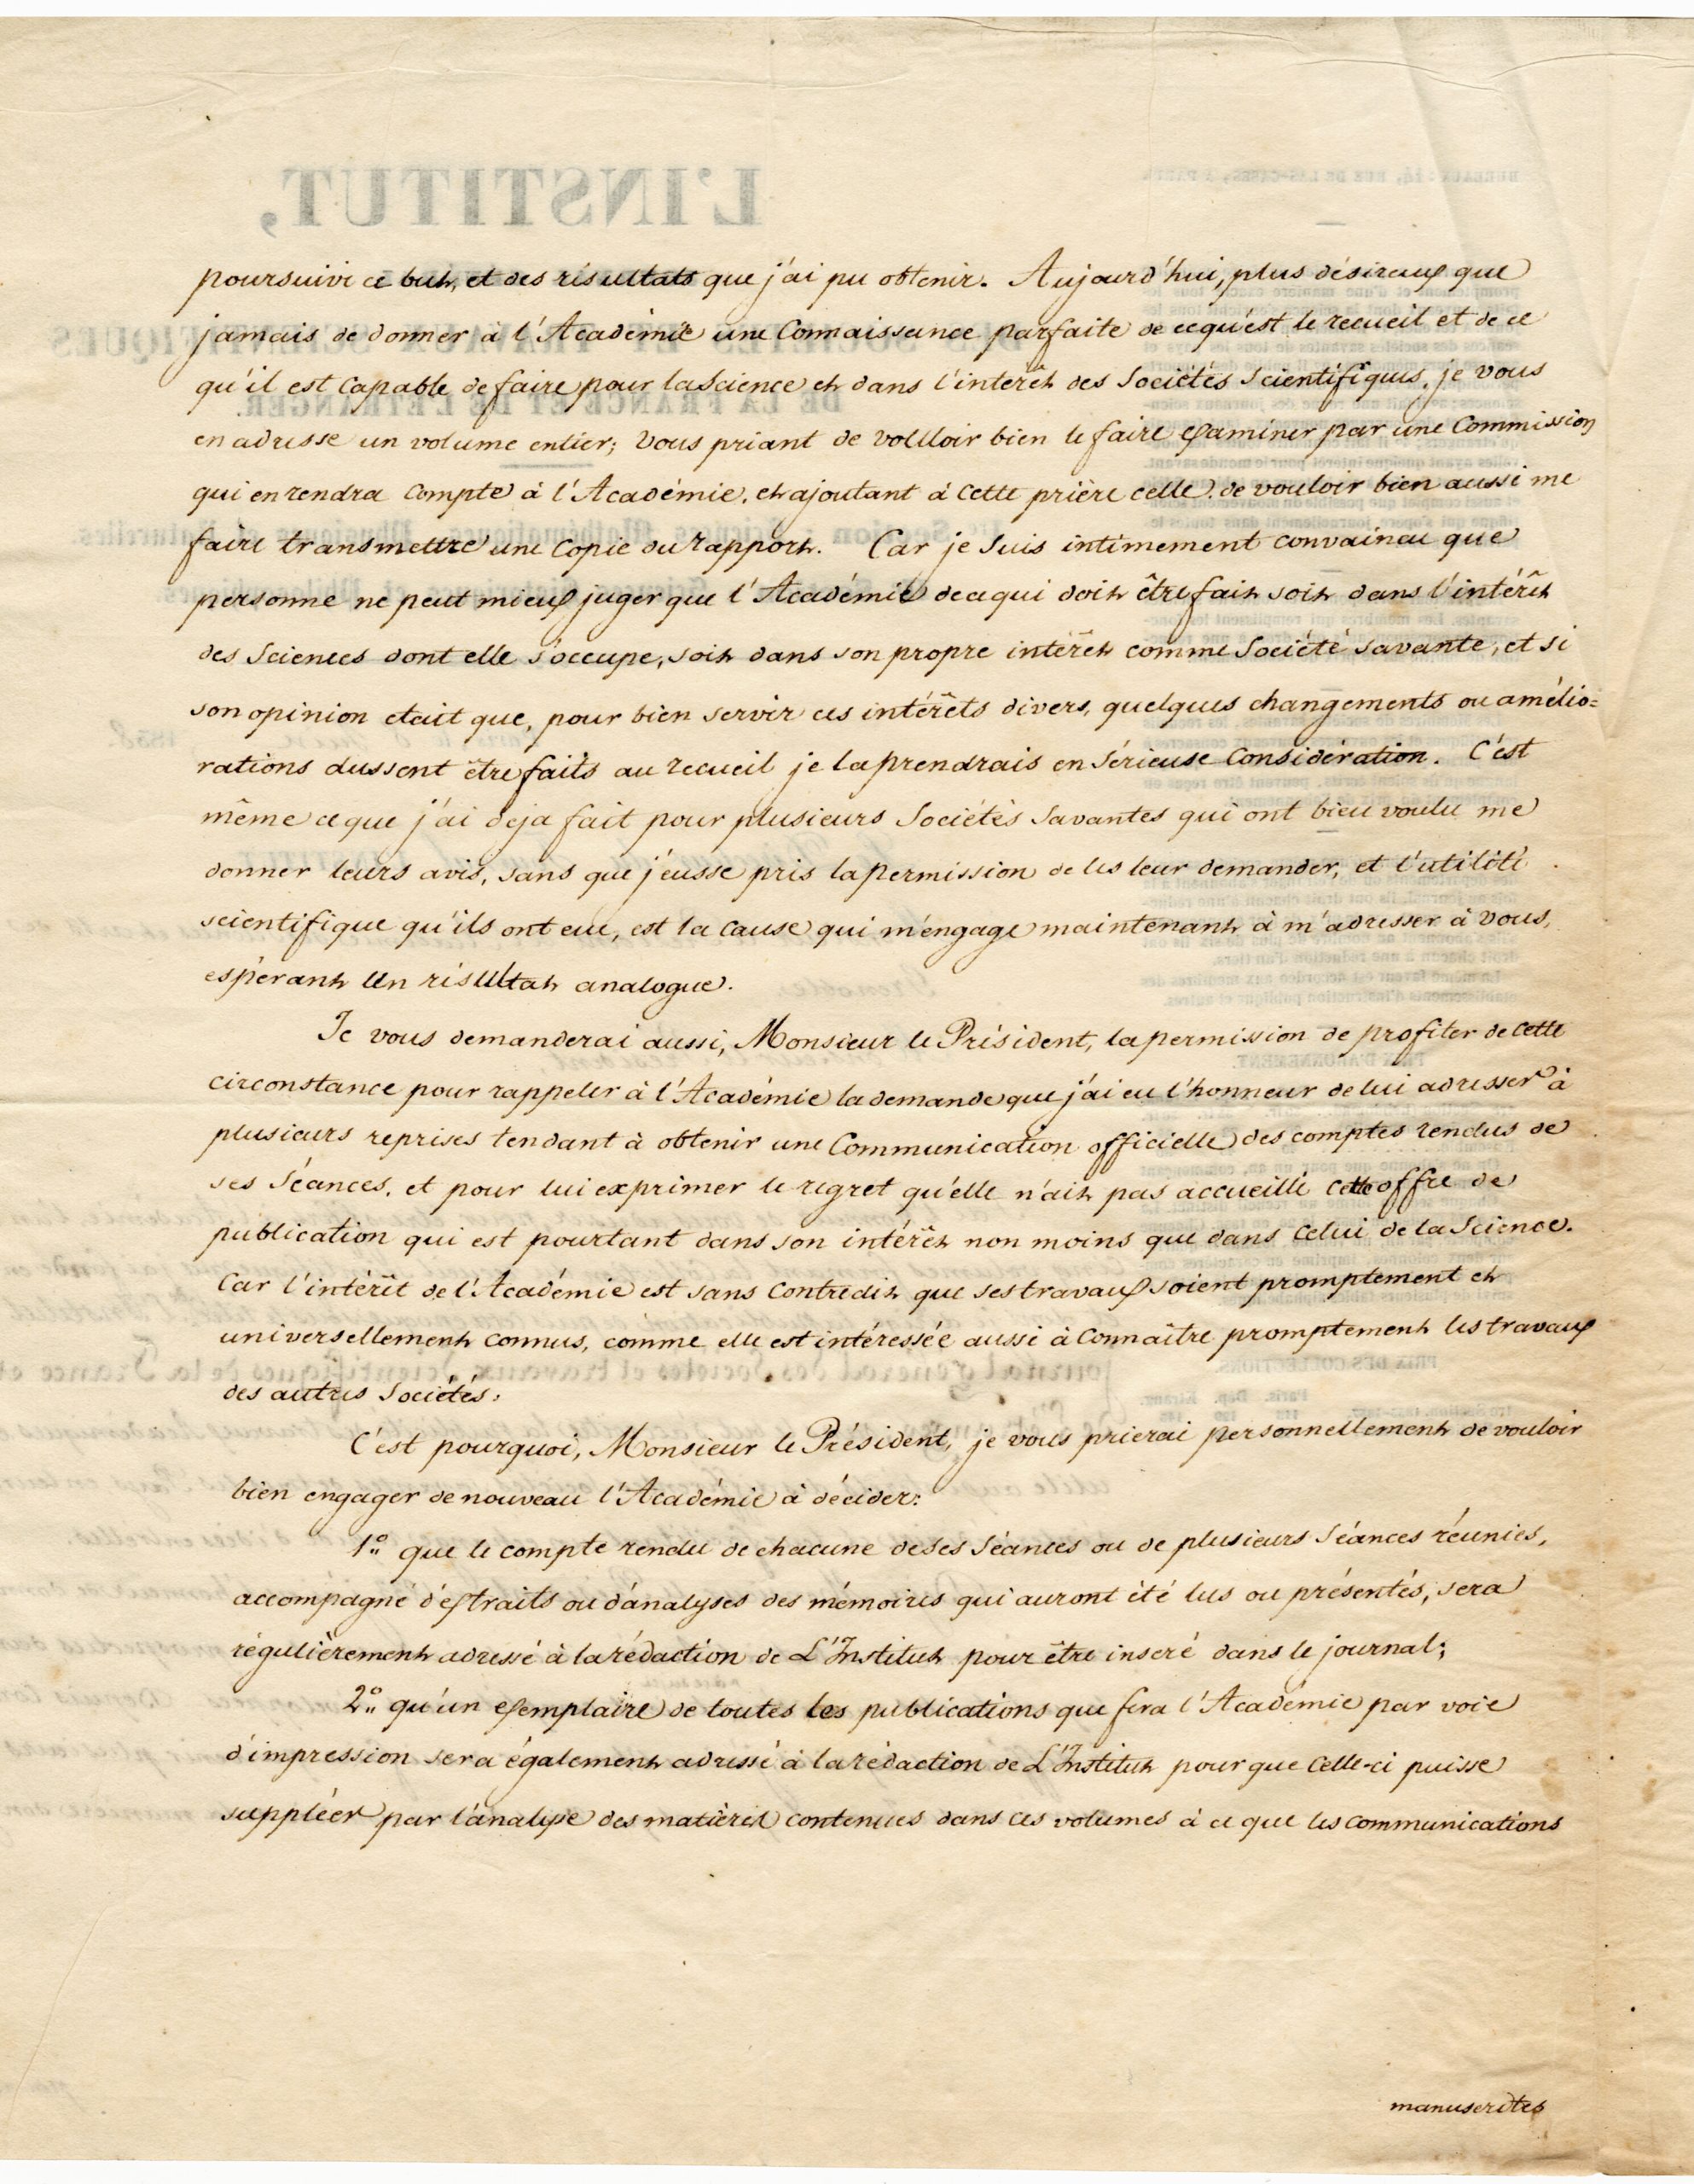 poursuivi ce but, et des résultats que j'ai pu obtenir. Aujourd'hui, plus désireux que
jamais de donner à l'Académie une Connaissance parfaite de ce qu'est le recueil et de ce
qu'il est capable de faire pour la Science et dans l'intérêt des Sociétés Scientifiques, je vous
en adresse un volume entier; Vous priant de vouloir bien le faire examiner par une Commission
qui en rendra Compte à l'Académie, et ajoutant à cette prière celle de vouloir bien aussi me
faire transmettre une Copie du rapport. Car je suis intimement convaincu que
personne ne peut mieux juger que l'Académie de ce qui doit être fait soit dans l'intérêt
des Sciences dont elle s'occupe, soit dans son propre intérêt comme Société savante, et si
son opinion etait que, pour bien servir ces intérêts divers, quelques changements ou amélio=
rations dussent être faits au recueil je la prendrais en Sérieuse Considération. C'est
même ce que j'ai deja fait pour plusieurs Sociétés Savantes qui ont bien voulu me
donner leurs avis, sans que j'eusse pris la permission de les leur demander, et l'utilité
scientifique qu'ils ont eue, est la Cause qui m'engage maintenant à m'adresser à Vous,
espérant un résultat analogue.
Je vous demanderai aussi, Monsieur le Président, la permission de profiter de cette
circonstance pour rappeler à l'Académie la demande que j'ai eu l'honneur de lui adresser à
plusieurs reprises tendant à obtenir une Communication officielle des comptes rendus de
ses Séances, et pour lui exprimer le regret qu'elle n'ait pas accueilli cette offre de
publication qui est pourtant dans son intérêt non moins que dans Celui de la Science.
Car l'intérêt de l'Académie est sans Contredit que ses travaux soient promptement et
universellement connus, comme elle est intéressée aussi à Connaître promptement les travaux
des autres Sociétés.
C'est pourquoi, Monsieur le Président, je vous prierai personnellement de vouloir
bien engager de nouveau l'Académie à décider:
1.° que le compte rendu de chacune de ses Séances ou de plusieurs Séances réunies,
accompagné d'extraits ou d'analyses des mémoires qui auront été lus ou présentés, sera
régulièrement adressé à la rédaction de L'Institut pour être inseré dans le journal;
2.° qu'un exemplaire de toutes les publications que fera l'Académie par voie
d'impression sera également adressé à la rédaction de L'Institut pour que Celle-ci puisse
suppléer par l'analyse des matières contenues dans ces volumes à ce que les communications
manuscrites